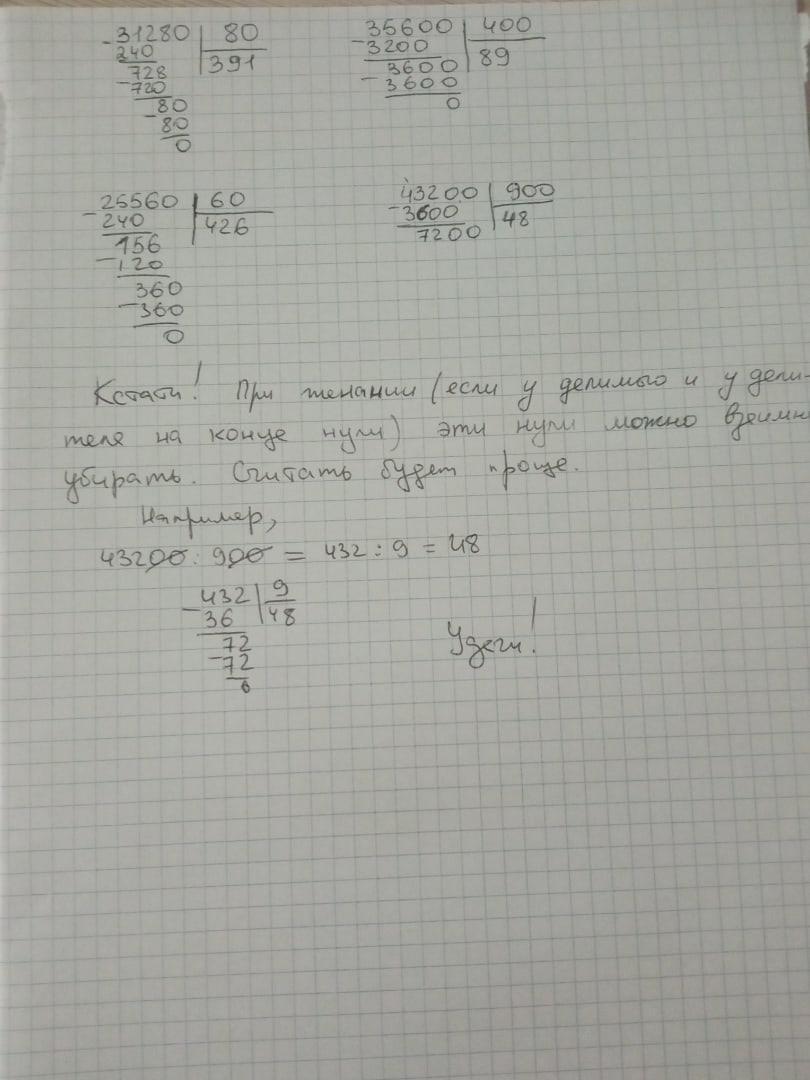 31280 | 80
- 240 | 391
728
- 720
80
- 80
0
35600 | 400
- 3200 | 89
3600
- 3600
0
25560 | 60
- 240 | 426
156
- 120
360
- 360
0
43200 | 900
- 3600 | 48
7200
Кстати! При желании (если у делимого и у дели-
теля на конце нули) эти нули можно взаимно
убирать. Считать будет проще.
Например,
43200 : 900 = 432 : 9 = 48
432 | 9
- 36 | 48
72
- 72
0
Удачи!